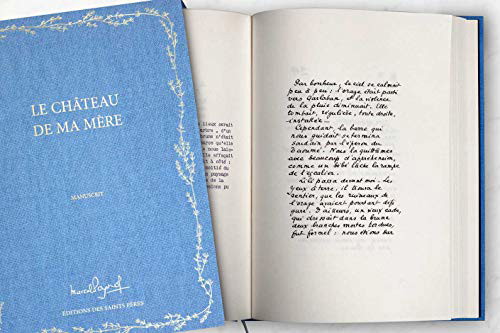 LE CHÂTEAU
DE MA MÈRE
MANUSCRIT
Marcel Pagnol
EDITIONS DES SAINTS PÈRES
lieux serait
qu'elle
effaçait
paysage
Par bonheur, le ciel se calmait
peu à peu : l'orage était parti
vers Garlaban, et la violence
de la pluie diminuait. Elle
tombait, régulière, toute droite,
installée...
Cependant, la barre qui
nous guidait se termina
soudain par l'éperon du
Taoumé. Nous la quittâmes
avec beaucoup d'appréhension,
comme un bébé lâche la rampe
de l'escalier.
Lili passa devant moi. Les
yeux à terre, il trouva le
sentier, que les ruisseaux de
l'orage avaient pourtant défi-
guré. D'ailleurs, un vieux cade,
qui dressait dans la brume
deux branches mortes tordues,
fut formel : nous étions sur